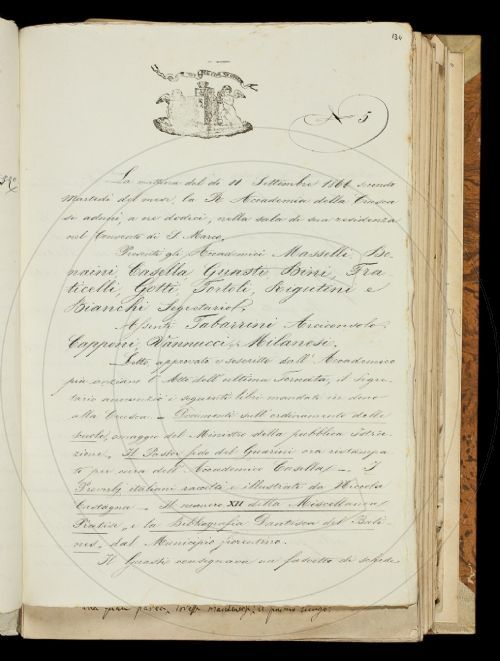 134
N 5
La mattina del dì 11 Settembre 1866 secondo
Martedì del mese, la R. Accademia della Crusca
si adunò, a ore dodici, nella sala di sua residenza
nel Convento di S. Marco.
Presenti gli Accademici Masselli, Bo-
naini, Casella, Guasti, Bini, Fra-
ticelli, Gotti, Tortoli, Rigutini e
Bianchi Segretario.
Assenti Tabarrini Arciconsolo,
Capponi, Vannucci, Milanesi.
Letto, approvato e soscritto dall'Accademico
più anziano l'Atto dell'ultima Tornata, il Segre-
tario annunziò i seguenti libri mandati in dono
alla Crusca. — Documenti sull'ordinamento delle
scuole, omaggio del Ministro della pubblica Istru-
zione. Il Pastor fido del Guarini ora ristampa-
to per cura dell'Accademico Casella. — I
Proverbj italiani raccolti e illustrati da Niccola
Castagna — Il numero XII della Miscellanea
Pratese, e la Bibliografia Dantesca del Bati-
nes, dal Municipio fiorentino.
Il Guasti consegnava un fascetto di schede